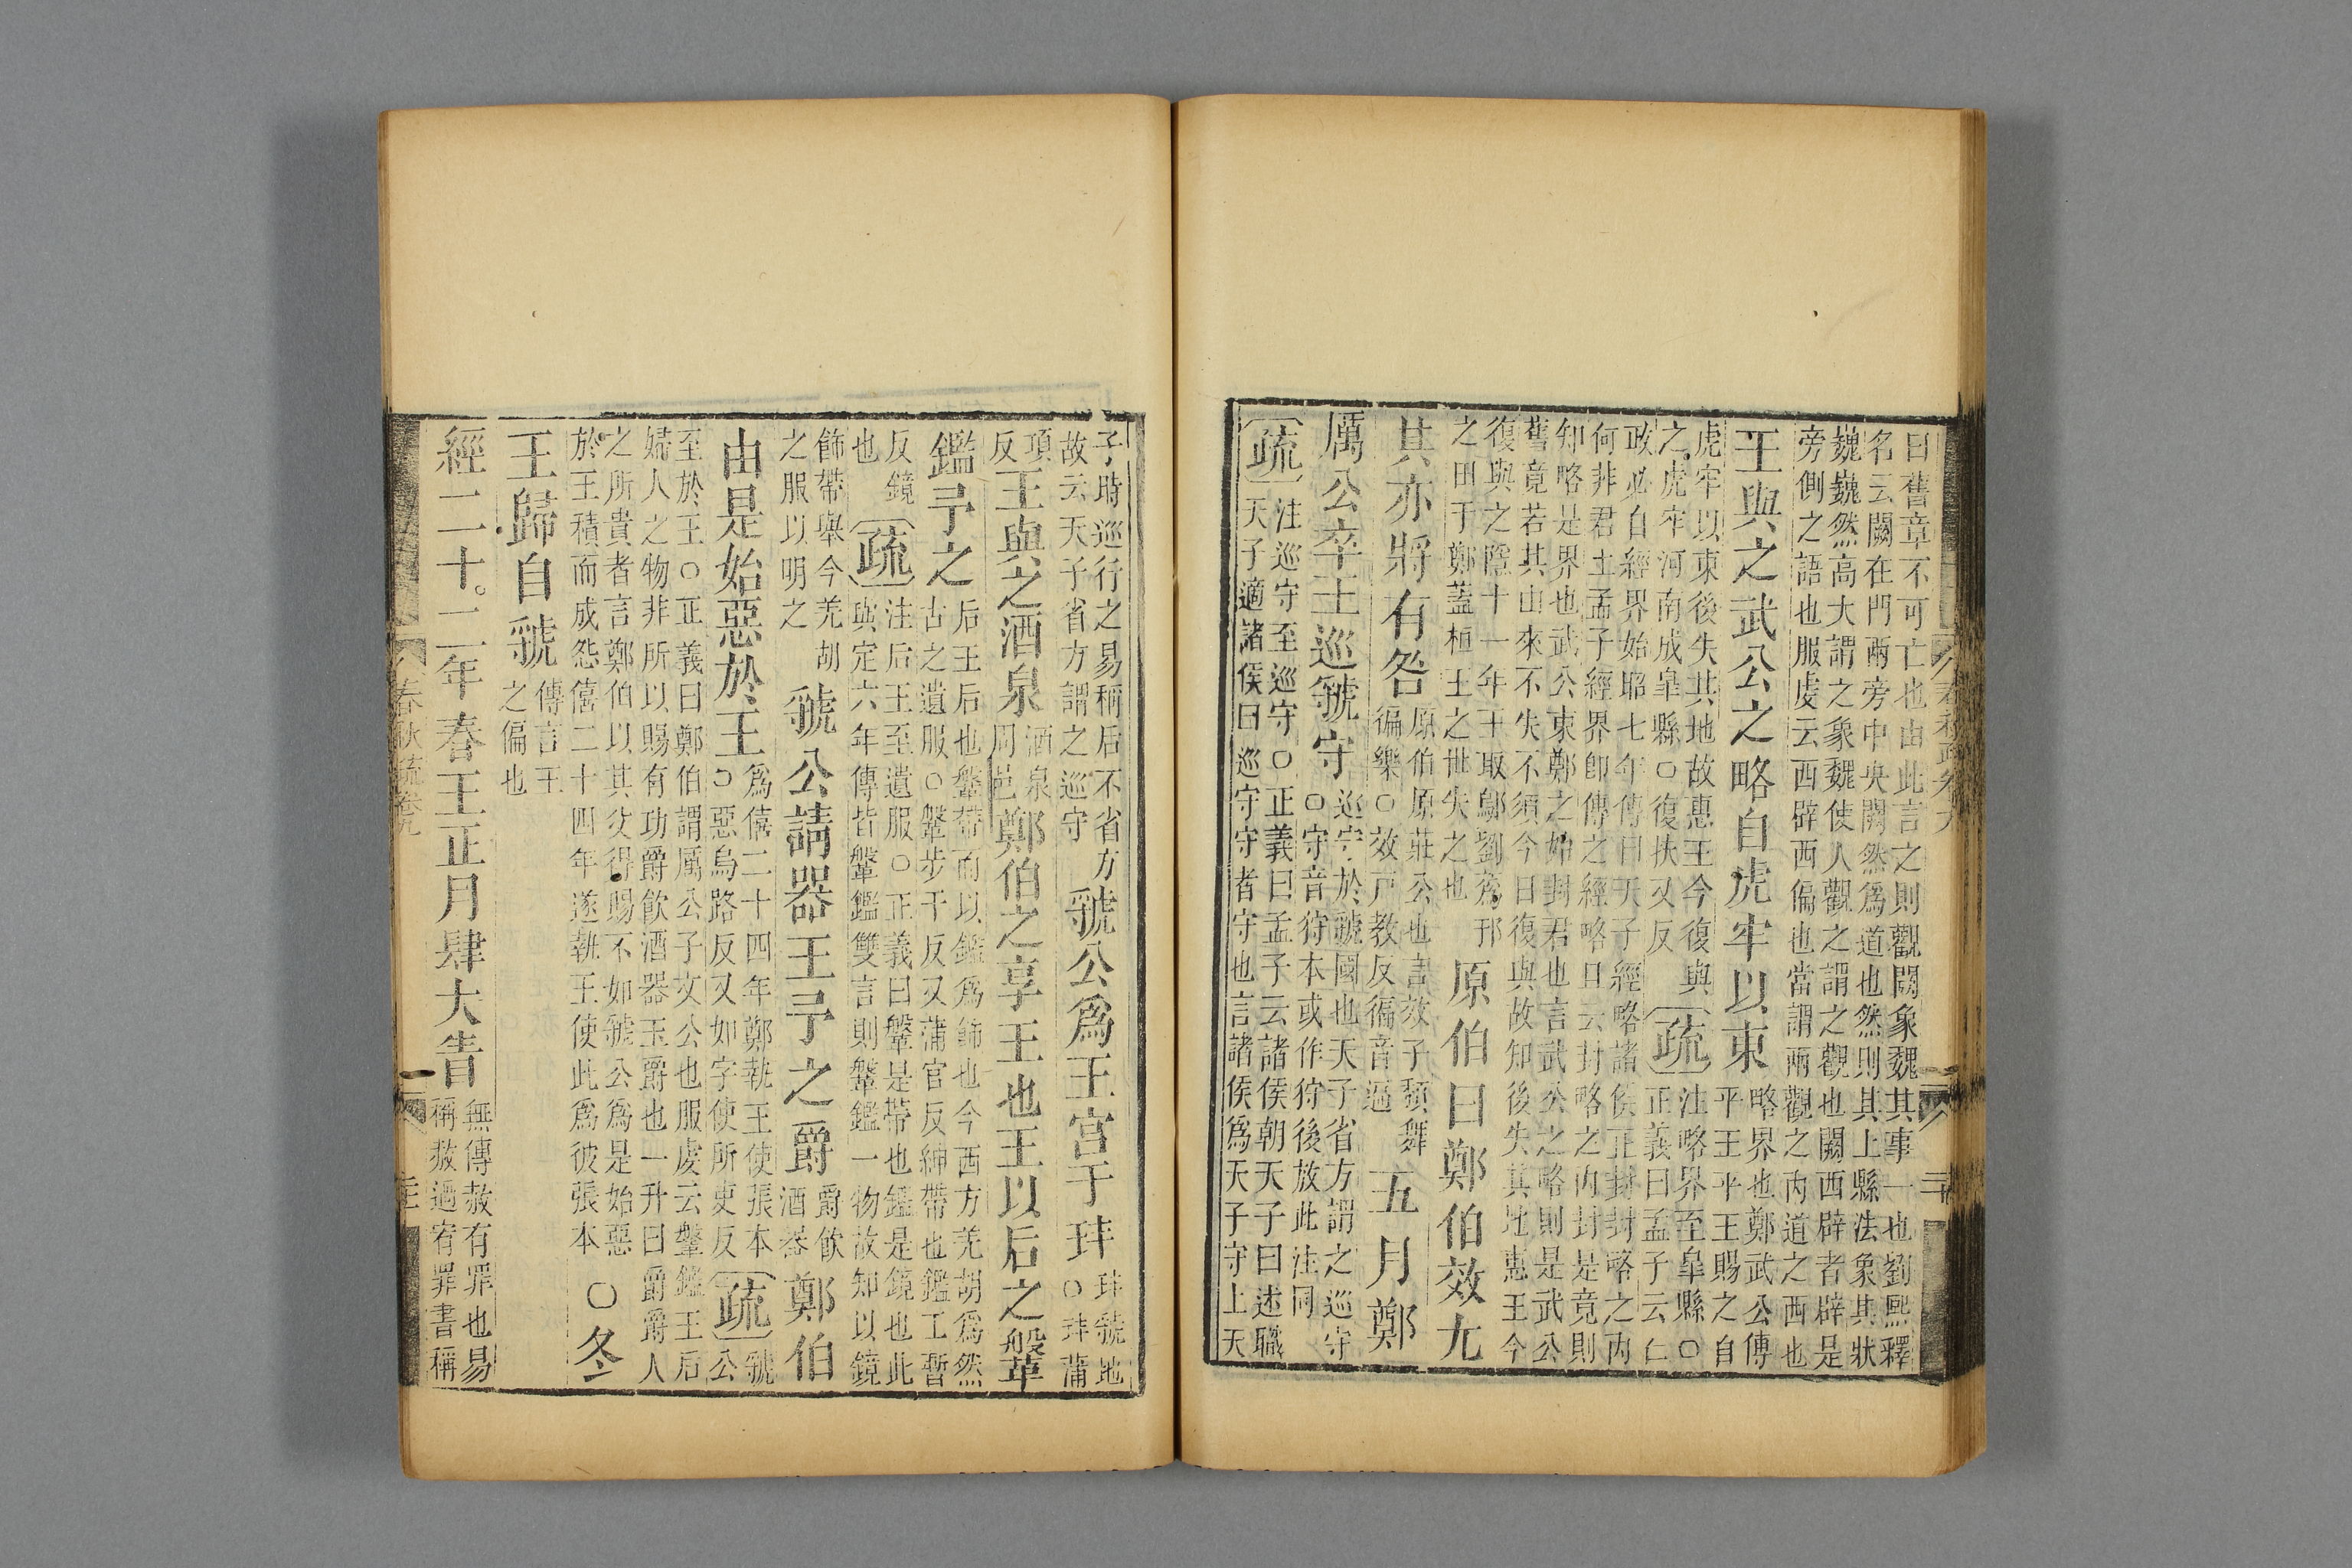 春秋疏卷九
二十
曰舊章不可亡也由此言之則觀闕象魏其事一也劉熙釋
名云闕在門兩旁中央闕然爲道也然則其上縣法象其狀
巍巍然高大謂之象魏使人觀之謂之觀也闕西辟者辟是
旁側之語也服虔云西辟西偏也當謂兩觀之内道之西也
王與之武公之略自虎牢以東
略界也鄭武公傳
平王平王賜之自
虎牢以東後失其地故惠王今復與
之虎牢河南成皐縣○復扶又反
疏
注略界至皐縣○
正義曰孟子云仁
政必自經界始昭七年傳曰天子經略諸侯正封封略之内
何非君土孟子經界卽傳之經略曰云封略之内封是竟則
知略是界也武公東鄭之始封君也言武公之略則是武公
舊竟若其山來不失不須今日復與故知後失其地惠王今
復與之隱十一年王取鄔劉蒍邘
之田于鄭蓋桓王之世失之也
原伯曰鄭伯效尤
其亦將有咎
原伯原莊公也言效子頽舞
徧樂○效戸教反徧音遍
五月鄭
厲公卒王巡虢守
巡守於虢國也天子省方謂之巡守
○守音狩本或作狩後放此注同
疏
注巡守至巡守○正義曰孟子云諸侯朝天子曰述職
天子適諸侯曰巡守守者守也言諸侯爲天子守土天
子時巡行之易稱后不省方
故云天子省方謂之巡守
虢公爲王宮于玤
玤虢地
○玤蒲
項
反
王與之酒泉
酒泉
周邑
鄭伯之享王也王以后之鞶
鑑予之
后王后也鞶帶而以鑑爲飾也今西方羌胡爲然
古之遺服○鞶步干反又蒲官反紳帶也鑑工暫
反鏡
也
疏
注后王至遺服○正義曰鞶是帶也鑑是鏡也此
與定六年傳皆鞶鑑雙言則鞶鑑一物故知以鏡
飾帶舉今羌胡
之服以明之
虢公請器王予之爵
爵飲
酒器
鄭伯
由是始惡於王
爲僖二十四年鄭執王使張本
○惡烏路反又如字使所吏反
疏
虢
公
至於王○正義曰鄭伯謂厲公子文公也服虔云鞶鑑王后
婦人之物非所以賜有功爵飲酒器玉爵也一升曰爵爵人
之所貴者言鄭伯以其父得賜不如虢公爲是始惡
於王積而成怨僖二十四年遂執王使此爲彼張本
○冬
王歸自虢
傳言王
之偏也
經二十。二年春王正月肆大眚
無傳赦有罪也易
稱赦過宥罪書稱
春秋疏卷九